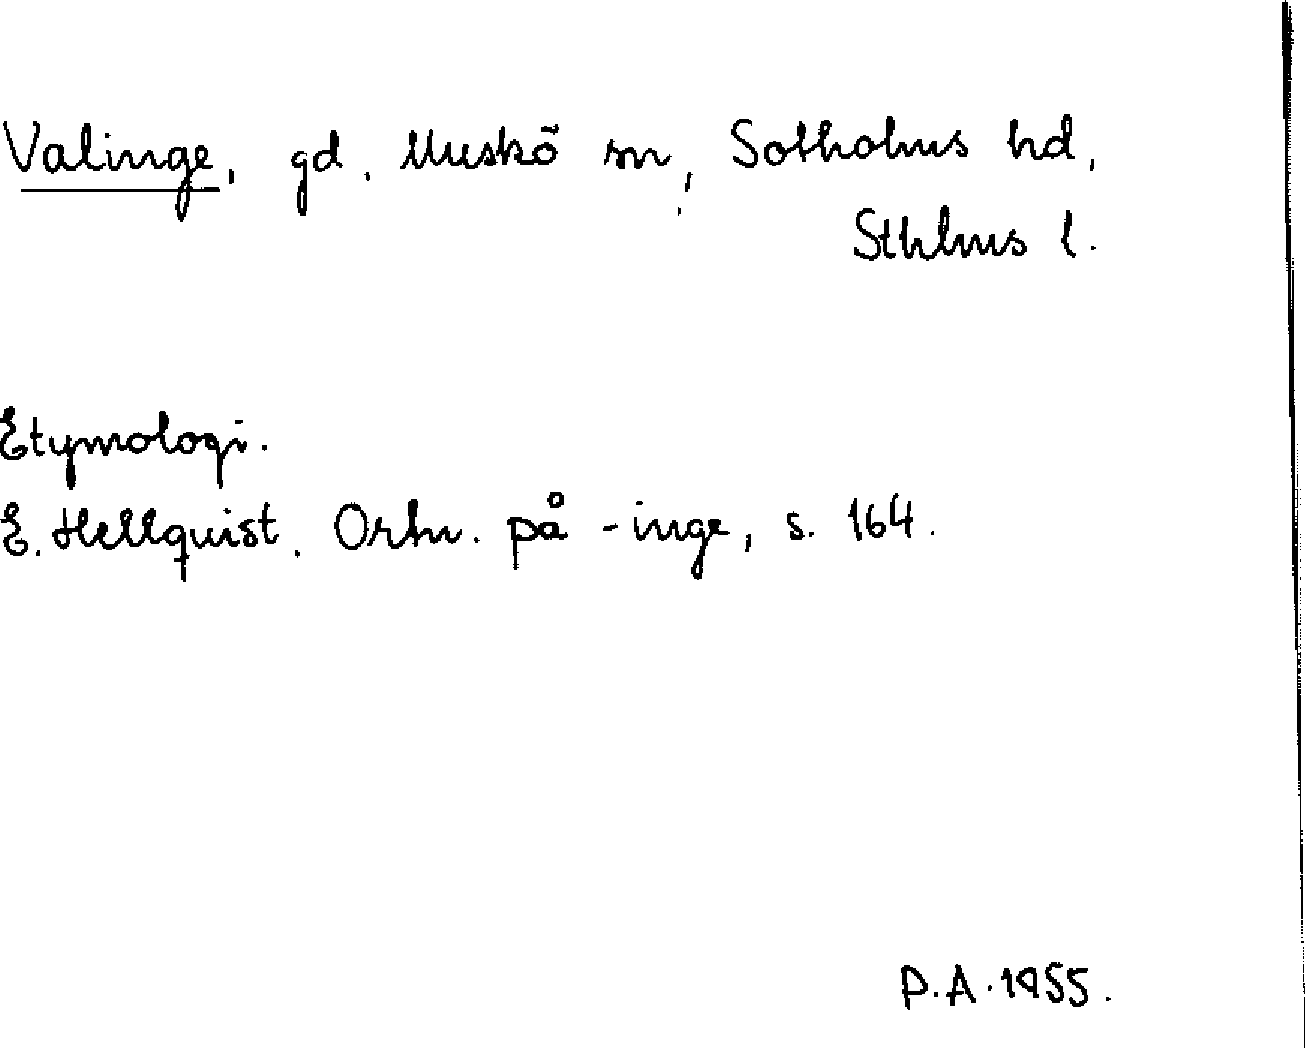 Valinge, gd, Muskö sn, Sotholms hd,
Sthlms l.
Etymologi.
E. Hellquist. Ortn. på -inge, s. 164.
P.A. 1955.